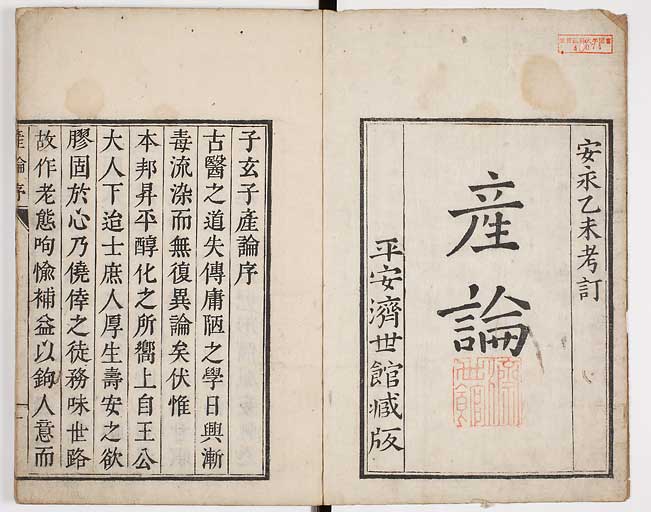 安永乙未考訂
産論
平安濟世館藏版
子玄子產論序
古醫之道失傳庸陋之學日興漸
毒流染而無復異論矣伏惟
本邦昇平醇化之所嚮上自王公
大人下迨士庶人厚生壽安之欲
膠固於心乃僥倖之徒務味世路
故作老態呴愉補益以鉤人意而
產論序